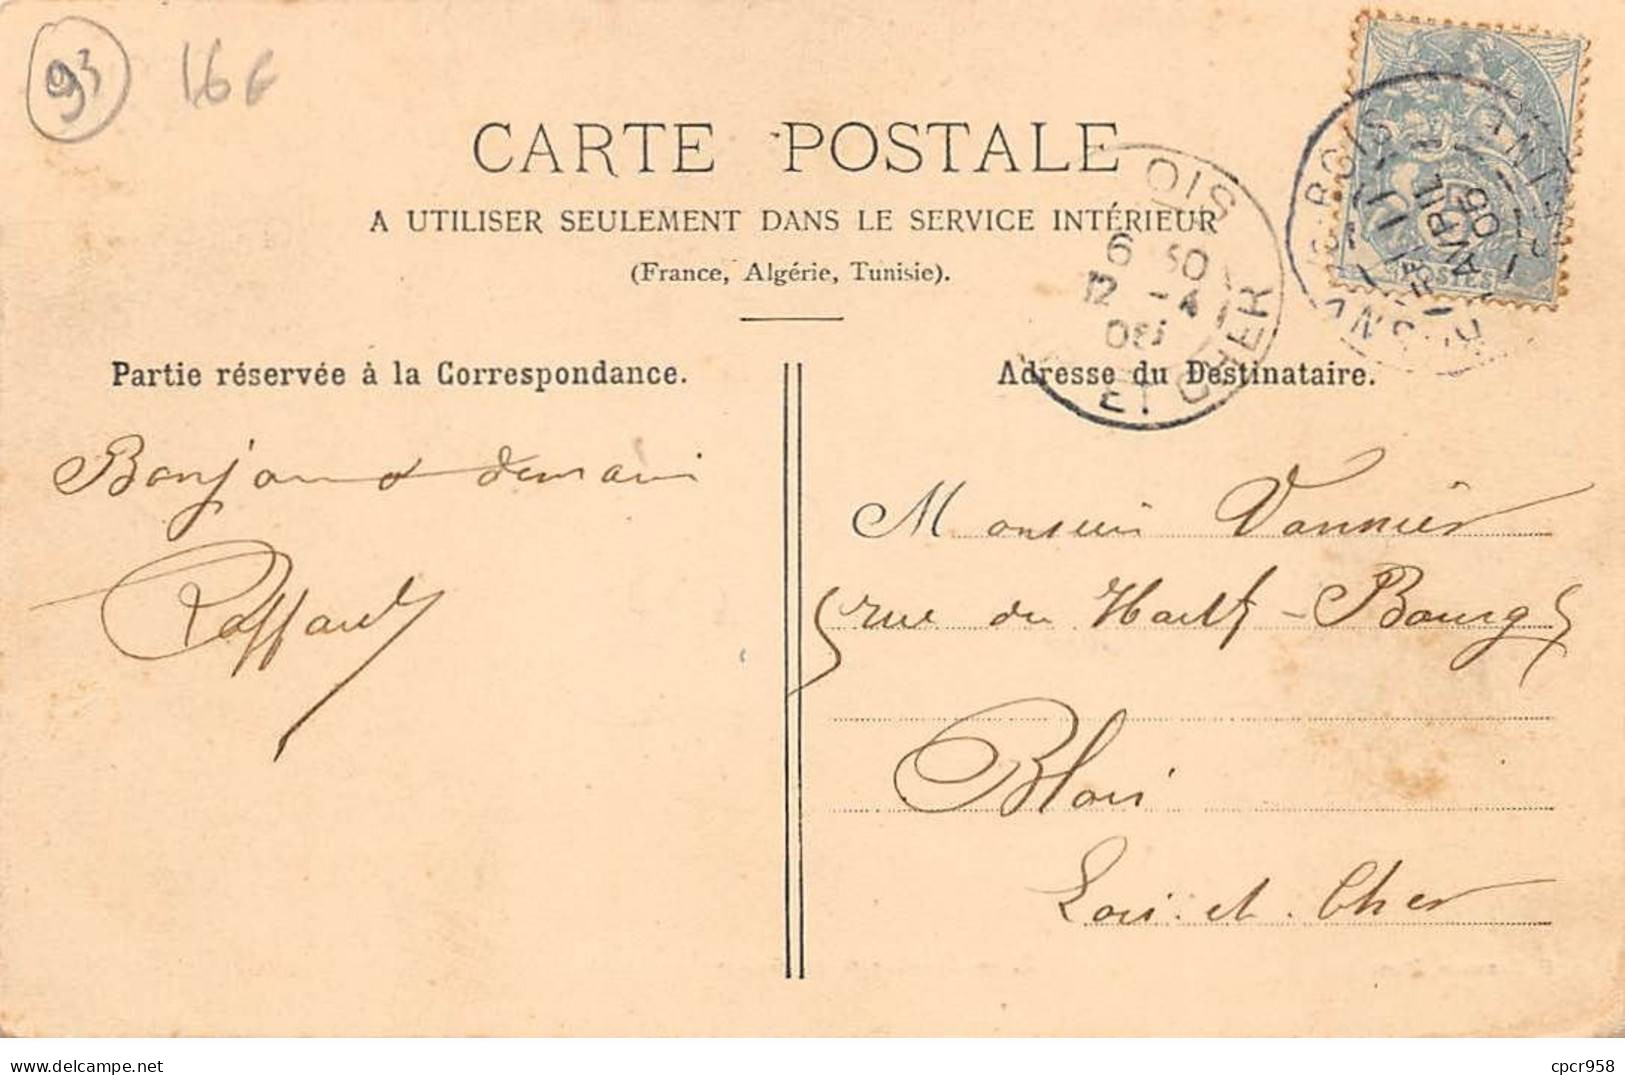 93 16 €
CARTE POSTALE
A UTILISER SEULEMENT DANS LE SERVICE INTÉRIEUR
(France, Algérie, Tunisie).
OIS
6 30
12 -4
ET CHER
AVRIL
05
POSTES
Partie réservée à la Correspondance.
Bonjour demain
Raffault
Adresse du Destinataire.
Monsieur Vannier
rue du Haut-Bourg
Blois
Loir-et-Cher
cpcr958